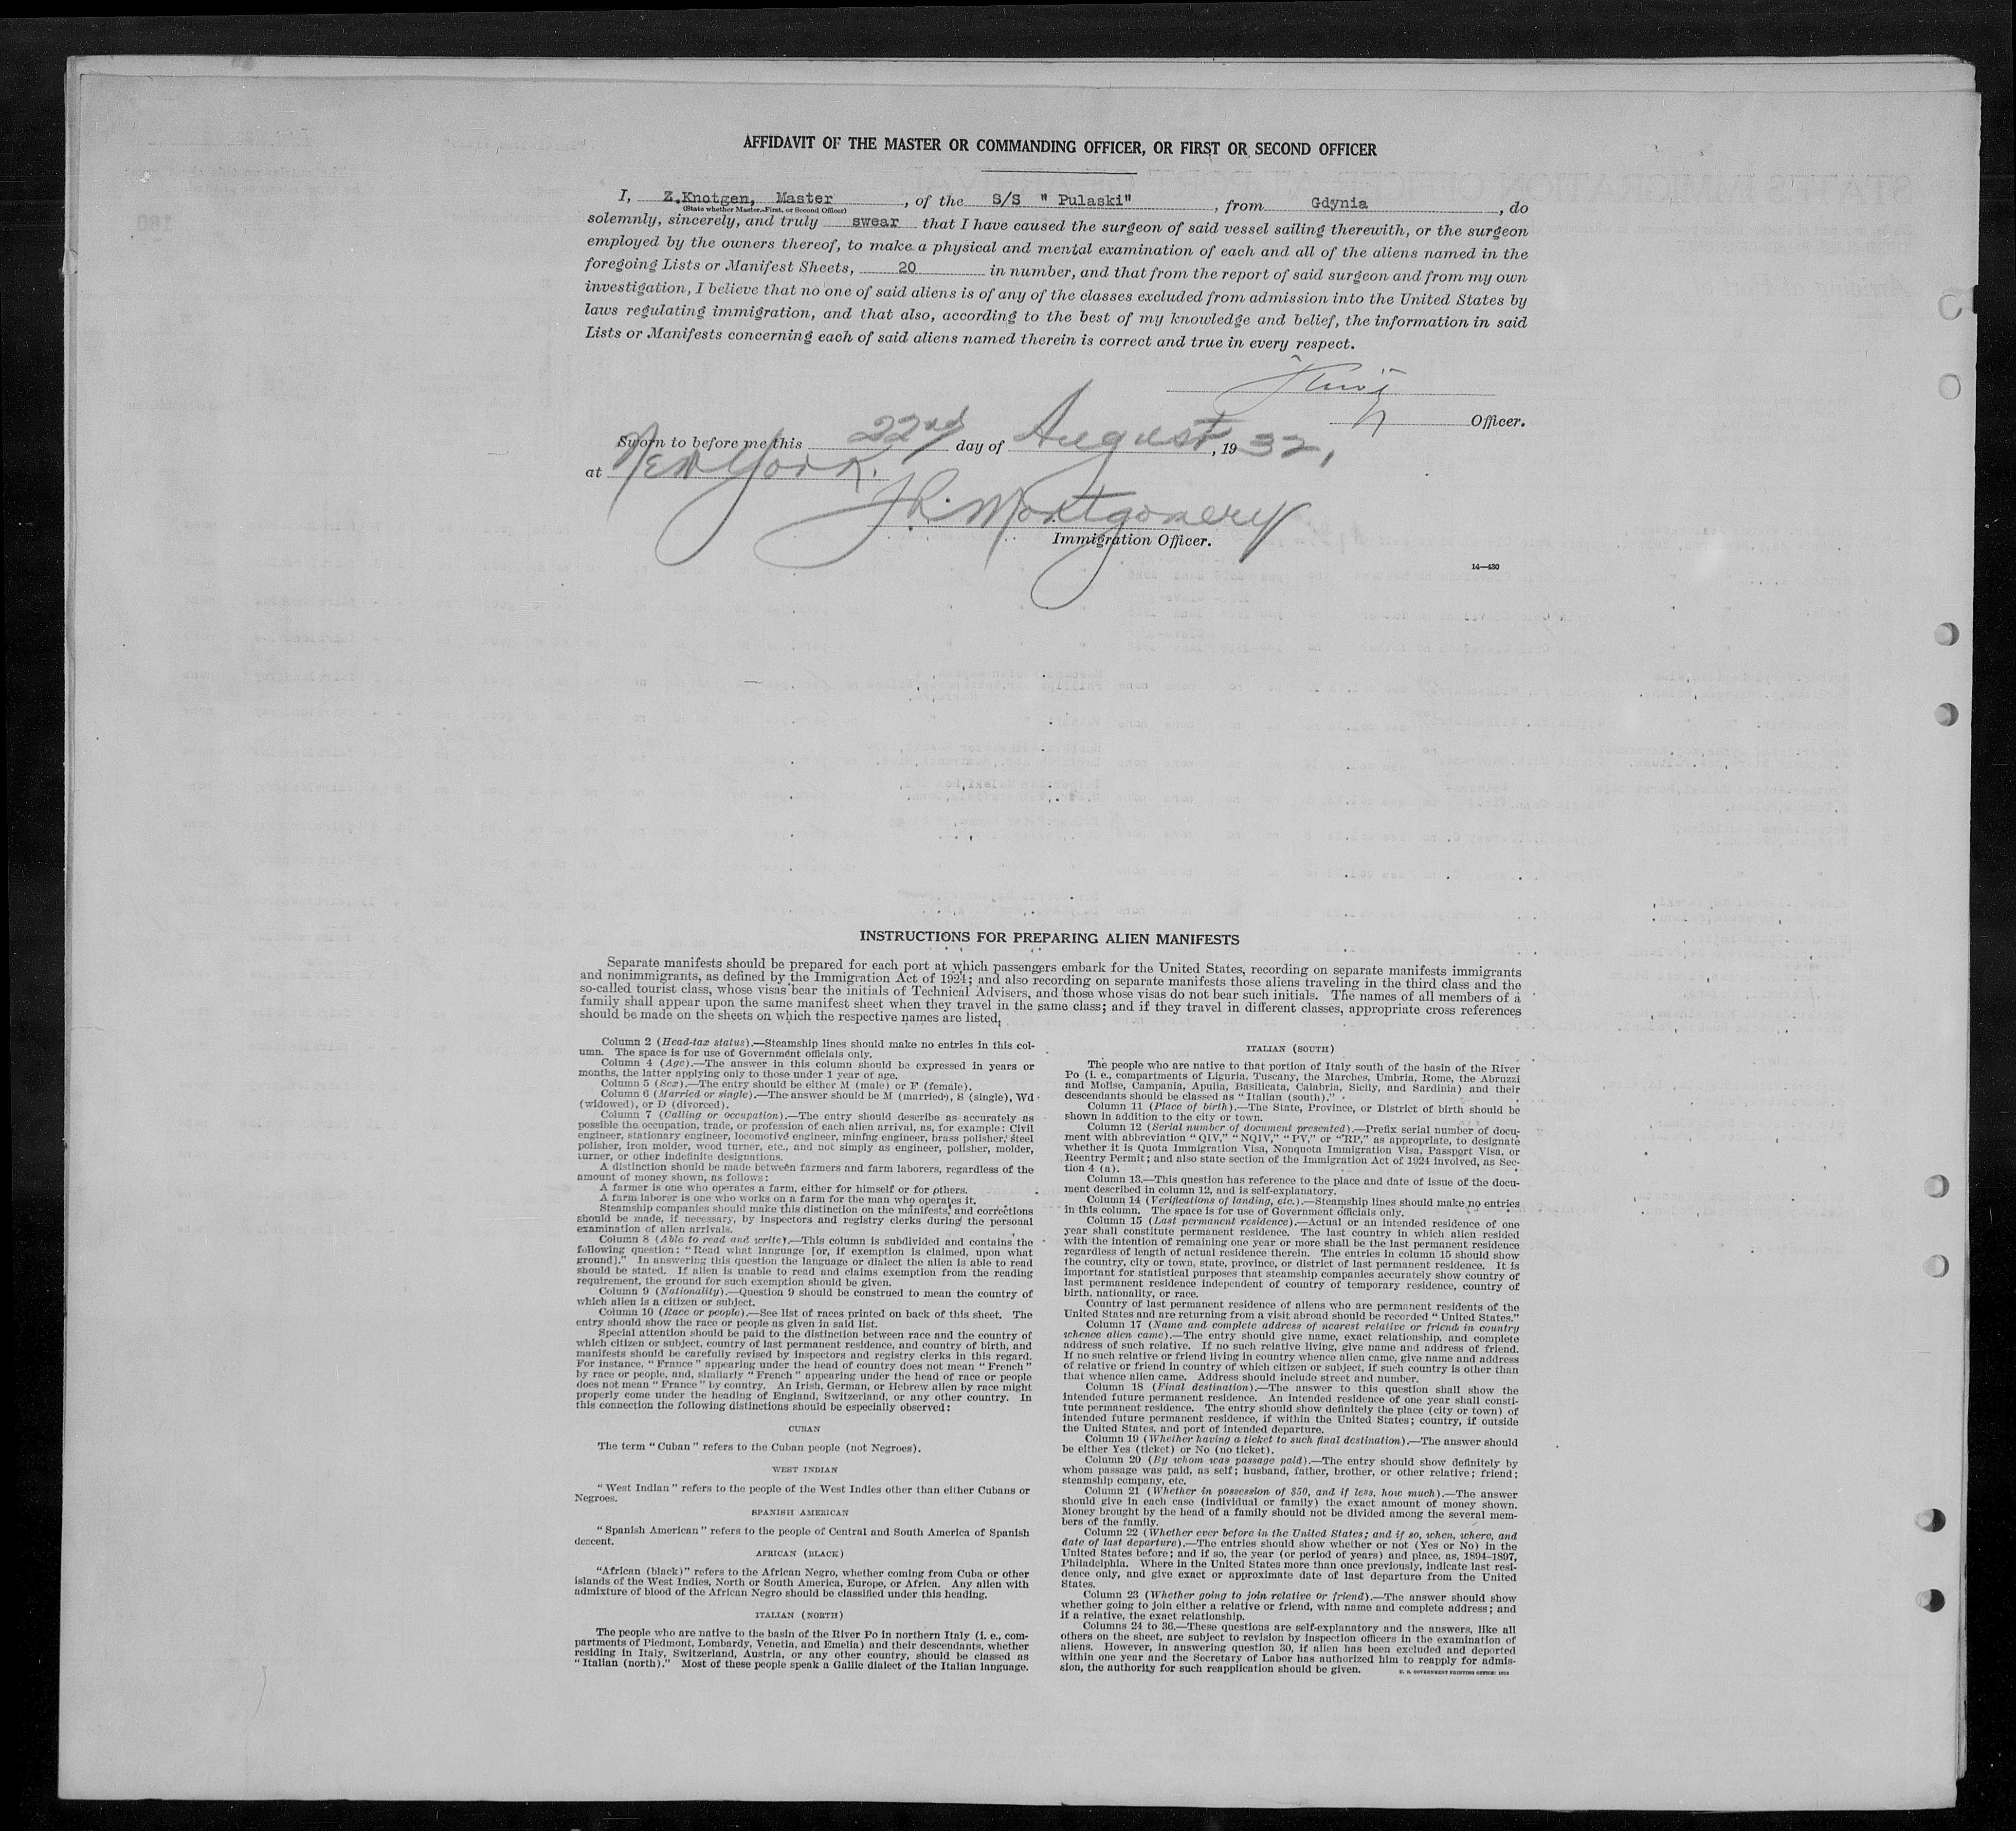 AFFIDAVIT OF THE MASTER OR COMMANDING OFFICER, OR FIRST OR SECOND OFFICER
I, Z.Knotgen, Master, of the S/S " Pulaski", from Gdynia, do
(State whether Master, First, or Second Officer)
solemnly, sincerely, and truly swear that I have caused the surgeon of said vessel sailing therewith, or the surgeon
employed by the owners thereof, to make a physical and mental examination of each and all of the aliens named in the
foregoing Lists or Manifest Sheets, 20 in number, and that from the report of said surgeon and from my own
investigation, I believe that no one of said aliens is of any of the classes excluded from admission into the United States by
laws regulating immigration, and that also, according to the best of my knowledge and belief, the information in said
Lists or Manifests concerning each of said aliens named therein is correct and true in every respect.
Officer.
Sworn to before me this 22nd day of August, 1932,
at New York.
Montgomery
Immigration Officer.
14—430
INSTRUCTIONS FOR PREPARING ALIEN MANIFESTS
Separate manifests should be prepared for each port at which passengers embark for the United States, recording on separate manifests immigrants
and nonimmigrants, as defined by the Immigration Act of 1924; and also recording on separate manifests those aliens traveling in the third class and the
so-called tourist class, whose visas bear the initials of Technical Advisers, and those whose visas do not bear such initials. The names of all members of a
family shall appear upon the same manifest sheet when they travel in the same class; and if they travel in different classes, appropriate cross references
should be made on the sheets on which the respective names are listed.
Column 2 (Head-tax status).—Steamship lines should make no entries in this col-
umn. The space is for use of Government officials only.
Column 4 (Age).—The answer in this column should be expressed in years or
months, the latter applying only to those under 1 year of age.
Column 5 (Sex).—The entry should be either M (male) or F (female).
Column 6 (Married or single).—The answer should be M (married), S (single), Wd
(widowed), or D (divorced).
Column 7 (Calling or occupation).—The entry should describe as accurately as
possible the occupation, trade, or profession of each alien arrival, as, for example: Civil
engineer, stationary engineer, locomotive engineer, mining engineer, brass polisher, steel
polisher, iron molder, wood turner, etc., and not simply as engineer, polisher, molder,
turner, or other indefinite designations.
A distinction should be made between farmers and farm laborers, regardless of the
amount of money shown, as follows:
A farmer is one who operates a farm, either for himself or for others.
A farm laborer is one who works on a farm for the man who operates it.
Steamship companies should make this distinction on the manifests, and corrections
should be made, if necessary, by inspectors and registry clerks during the personal
examination of alien arrivals.
Column 8 (Able to read and write).—This column is subdivided and contains the
following question: "Read what language [or, if exemption is claimed, upon what
ground]." In answering this question the language or dialect the alien is able to read
should be stated. If alien is unable to read and claims exemption from the reading
requirement, the ground for such exemption should be given.
Column 9 (Nationality).—Question 9 should be construed to mean the country of
which alien is a citizen or subject.
Column 10 (Race or people).—See list of races printed on back of this sheet. The
entry should show the race or people as given in said list.
Special attention should be paid to the distinction between race and the country of
which citizen or subject, country of last permanent residence, and country of birth, and
manifests should be carefully revised by inspectors and registry clerks in this regard.
For instance, "France" appearing under the head of country does not mean "French"
by race or people, and, similarly "French" appearing under the head of race or people
does not mean "France" by country. An Irish, German, or Hebrew alien by race might
properly come under the heading of England, Switzerland, or any other country. In
this connection the following distinctions should be especially observed:
CUBAN
The term "Cuban" refers to the Cuban people (not Negroes).
WEST INDIAN
"West Indian" refers to the people of the West Indies other than either Cubans or
Negroes.
SPANISH AMERICAN
"Spanish American" refers to the people of Central and South America of Spanish
descent.
AFRICAN (BLACK)
"African (black)" refers to the African Negro, whether coming from Cuba or other
islands of the West Indies, North or South America, Europe, or Africa. Any alien with
admixture of blood of the African Negro should be classified under this heading.
ITALIAN (NORTH)
The people who are native to the basin of the River Po in northern Italy (i. e., com-
partments of Piedmont, Lombardy, Venetia, and Emelia) and their descendants, whether
residing in Italy, Switzerland, Austria, or any other country, should be classed as
"Italian (north)." Most of these people speak a Gallic dialect of the Italian language.
ITALIAN (SOUTH)
The people who are native to that portion of Italy south of the basin of the River
Po (i. e., compartments of Liguria, Tuscany, the Marches, Umbria, Rome, the Abruzzi
and Molise, Campania, Apulia, Basilicata, Calabria, Sicily, and Sardinia) and their
descendants should be classed as "Italian (south)."
Column 11 (Place of birth).—The State, Province, or District of birth should be
shown in addition to the city or town.
Column 12 (Serial number of document presented).—Prefix serial number of docu-
ment with abbreviation "QIV," "NQIV," "PV," or "RP," as appropriate, to designate
whether it is Quota Immigration Visa, Nonquota Immigration Visa, Passport Visa, or
Reentry Permit; and also state section of the Immigration Act of 1924 involved, as Sec-
tion 4 (a).
Column 13.—This question has reference to the place and date of issue of the docu-
ment described in column 12, and is self-explanatory.
Column 14 (Verifications of landing, etc.).—Steamship lines should make no entries
in this column. The space is for use of Government officials only.
Column 15 (Last permanent residence).—Actual or an intended residence of one
year shall constitute permanent residence. The last country in which alien resided
with the intention of remaining one year or more shall be the last permanent residence
regardless of length of actual residence therein. The entries in column 15 should show
the country, city or town, state, province, or district of last permanent residence. It is
important for statistical purposes that steamship companies accurately show country of
last permanent residence independent of country of temporary residence, country of
birth, nationality, or race.
Country of last permanent residence of aliens who are permanent residents of the
United States and are returning from a visit abroad should be recorded "United States."
Column 17 (Name and complete address of nearest relative or friend in country
whence alien came).—The entry should give name, exact relationship, and complete
address of such relative. If no such relative living, give name and address of friend.
If no such relative or friend living in country whence alien came, give name and address
of relative or friend in country of which citizen or subject, if such country is other than
that whence alien came. Address should include street and number.
Column 18 (Final destination).—The answer to this question shall show the
intended future permanent residence. An intended residence of one year shall consti-
tute permanent residence. The entry should show definitely the place (city or town) of
intended future permanent residence, if within the United States; country, if outside
the United States, and port of intended departure.
Column 19 (Whether having a ticket to such final destination).—The answer should
be either Yes (ticket) or No (no ticket).
Column 20 (By whom was passage paid).—The entry should show definitely by
whom passage was paid, as self; husband, father, brother, or other relative; friend;
steamship company, etc.
Column 21 (Whether in possession of $50, and if less, how much).—The answer
should give in each case (individual or family) the exact amount of money shown.
Money brought by the head of a family should not be divided among the several mem-
bers of the family.
Column 22 (Whether ever before in the United States; and if so, when, where, and
date of last departure).—The entries should show whether or not (Yes or No) in the
United States before; and if so, the year (or period of years) and place, as, 1894–1897,
Philadelphia. Where in the United States more than once previously, indicate last resi-
dence only, and give exact or approximate date of last departure from the United
States.
Column 23 (Whether going to join relative or friend).—The answer should show
whether going to join either a relative or friend, with name and complete address; and
if a relative, the exact relationship.
Columns 24 to 36.—These questions are self-explanatory and the answers, like all
others on the sheet, are subject to revision by inspection officers in the examination of
aliens. However, in answering question 30, if alien has been excluded and deported
within one year and the Secretary of Labor has authorized him to reapply for admis-
sion, the authority for such reapplication should be given.
U. S. GOVERNMENT PRINTING OFFICE: